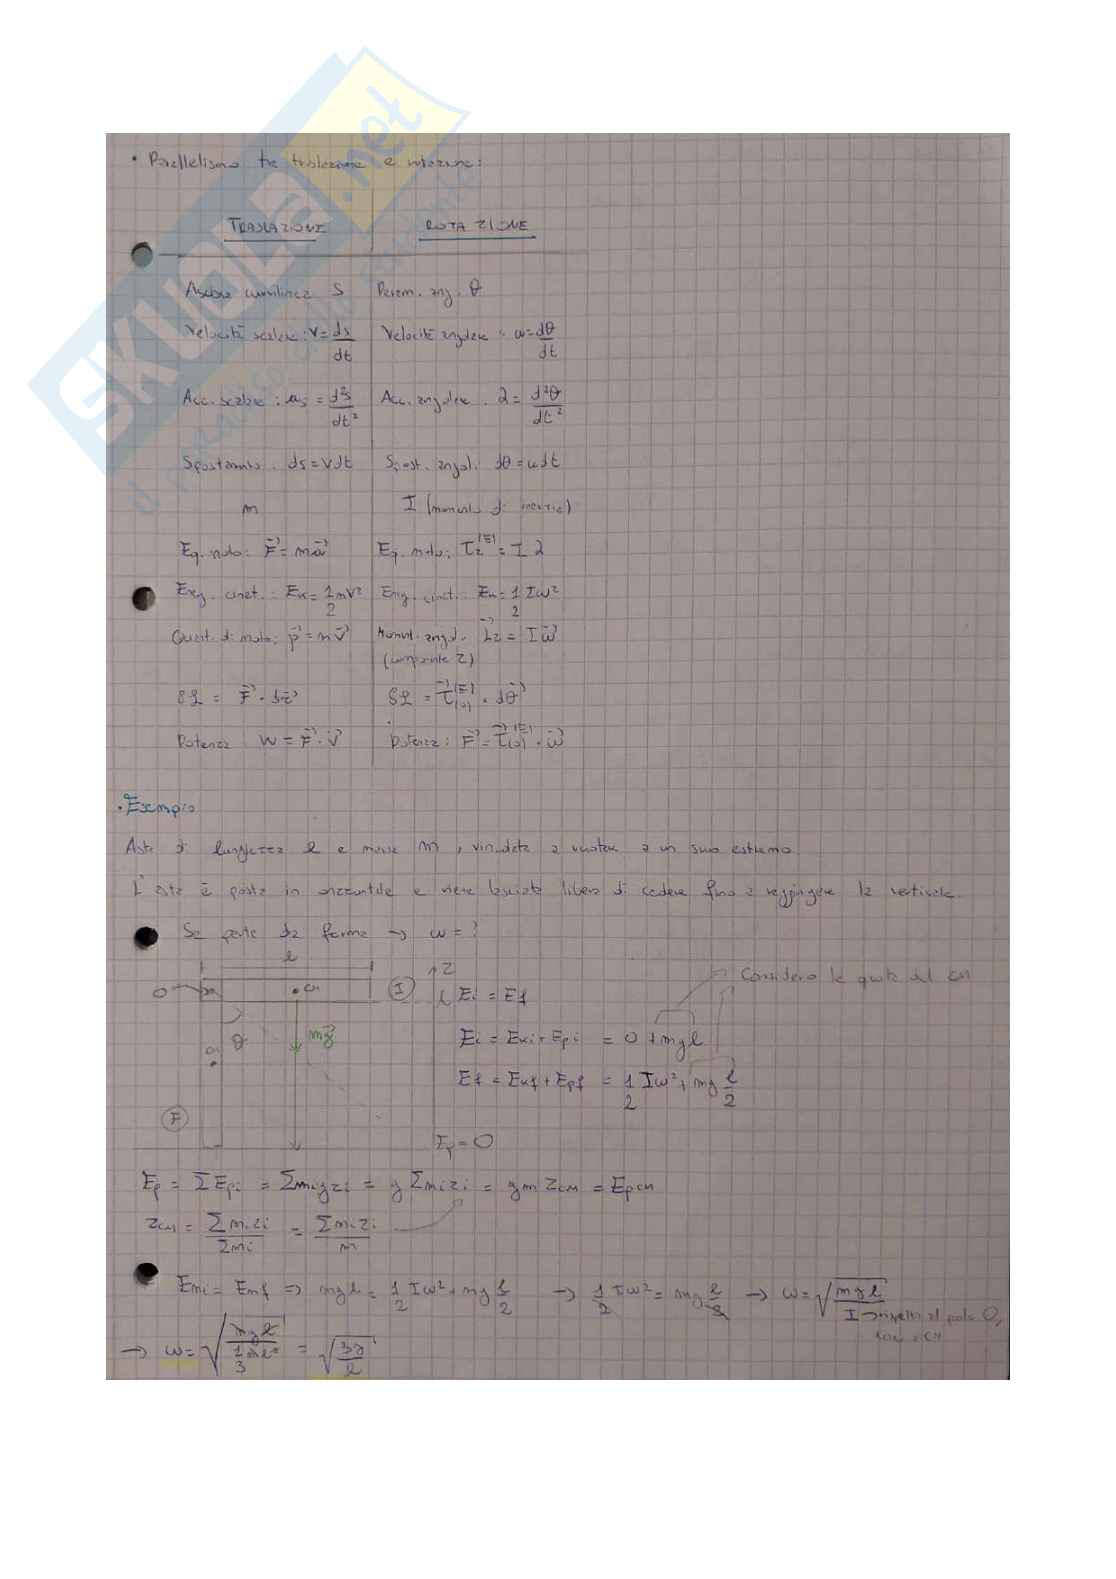 SKUOLA.net
• Parallelismo tra traslazione e rotazione:
TRASLAZIONE ROTAZIONE
Ascissa curvilinea S Param. ang. θ
Velocità scalare: v = ds/dt Velocità angolare: ω = dθ/dt
Acc. scalare: as = d²s/dt² Acc. angolare: α = d²θ/dt²
Spostamento: ds = v dt Spost. angol. dθ = ω dt
m I (momento di inerzia)
Eq. moto: F = ma Eq. moto: τz^(E) = I α
Energ. cinet.: Ek = 1/2 mv² Energ. cinet.: Ek = 1/2 Iω²
Quant. di moto: p = mv Moment. angol. Lz = Iω
(componente z)
δL = F · dr δL = τ(o)^(E) · dθ
Potenza: W = F · v Potenza: P = τ(o)^(E) · ω
• Esempio
Asta di lunghezza l e massa m, vincolata a ruotare a un suo estremo.
L'asta è posta in orizzontale e viene lasciata libera di cadere fino a raggiungere la verticale.
Se parte da ferma → ω = ?
l
z
Considero le quote del CM
O CM I
Ei = Ef
θ mg
Ei = Eki + Epi = 0 + mgl
Ef = Ekf + Epf = 1/2 Iω² + mg l/2
F
Ep = 0
Ep = ΣEpi = Σmigzi = gΣmizi = gm zCM = EpCM
zCM = Σmizi/Σmi = Σmizi/m
Emi = Emf ⇒ mgl = 1/2 Iω² + mg l/2 → 1/2 Iω² = mg l/2 → ω = √(mgl/I)
→ rispetto al polo O,
→ ω = √(mgl / 1/3 ml²) = √(3g/l)